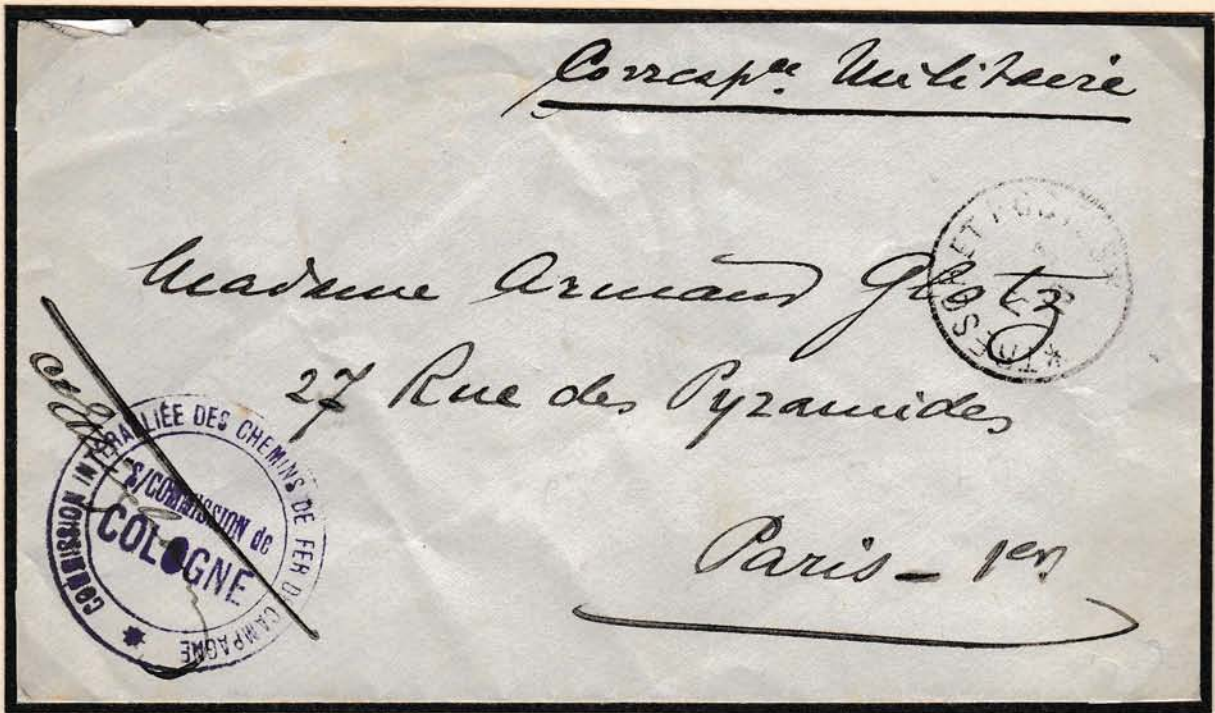 Corresp.ce Militaire
Madame Armand Glotz
27 Rue des Pyramides
Paris - 1er
COMMISSION INTERALLIÉE DES CHEMINS DE FER D CAMPAGNE
S/COMMISSION de
COLOGNE
*TRESOR ET POSTES*